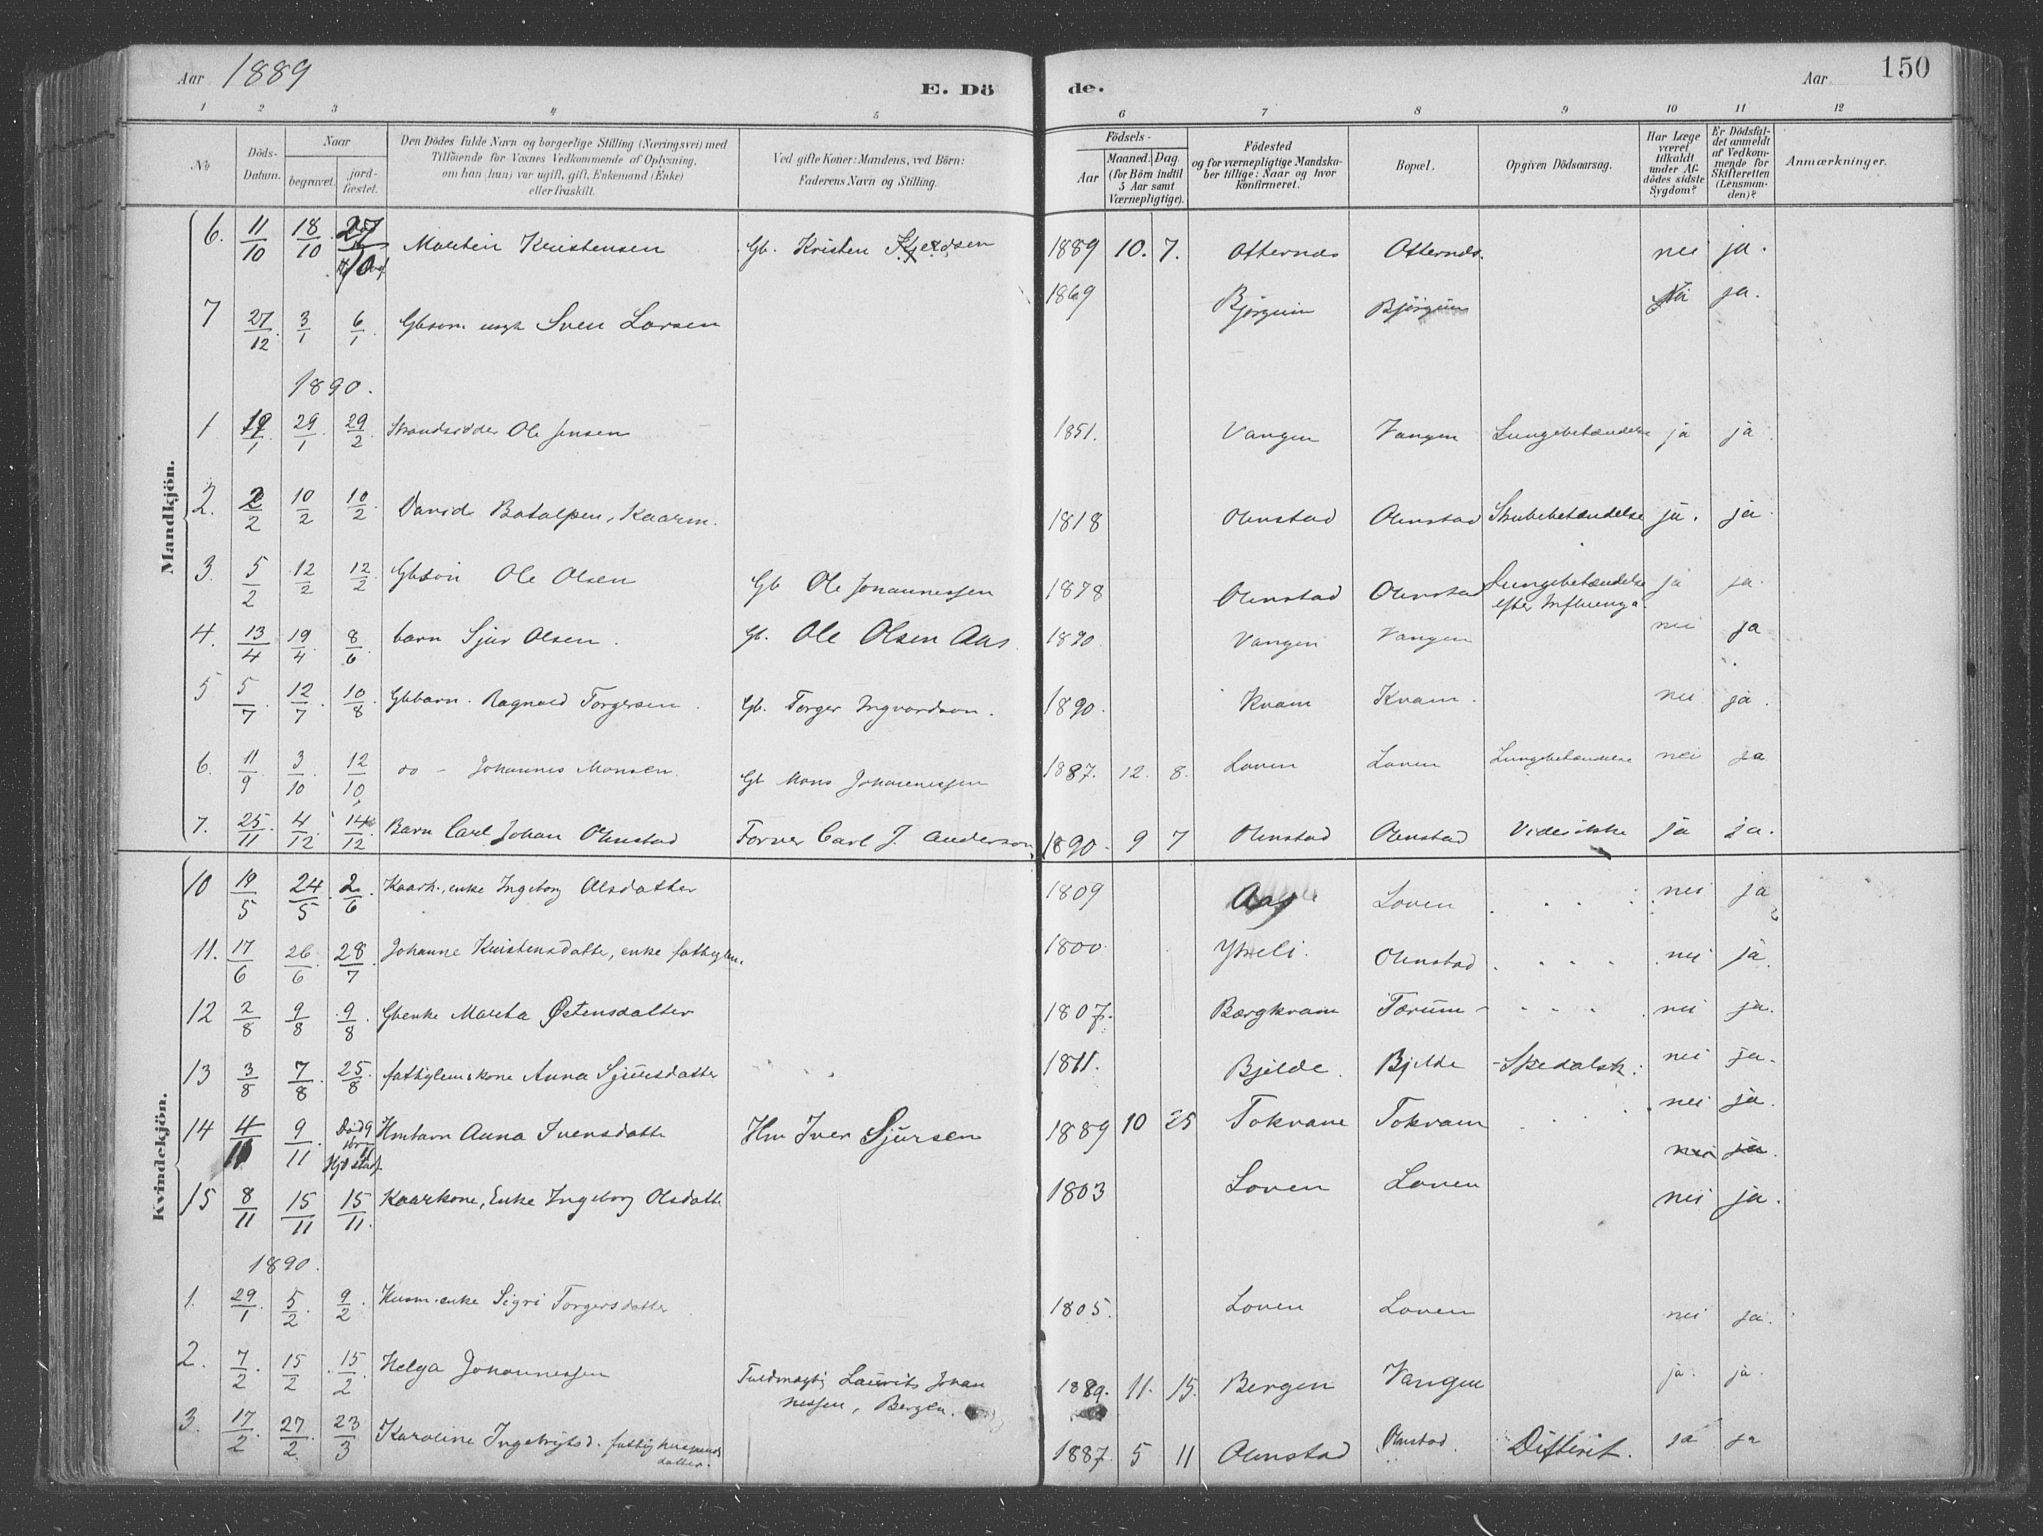 Aar 1889 E. Dö de. Aar 150
1 2 3 4 5 6 7 8 9 10 11 12
No Döds-Datum. Naar begravet. jord-fæstet. Den Dödes fulde Navn og borgerlige Stilling (Næringsvei) med Tilföiende for Voxnes Vedkommende af Oplysning, om han (hun) var ugift, gift, Enkemand (Enke) eller fraskilt. Ved gifte Koner: Mandens, ved Börn: Faderens Navn og Stilling. Födsels- Aar Maaned. Dag. (for Börn indtil 5 Aar samt Værnepligtige). Födested og for værnepligtige Mandskaber tillige: Naar og hvor konfirmeret. Bopæl. Opgiven Dödsaarsag. Har Læge været tilkaldt under Afdødes sidste Sygdom? Er Dödsfaldet anmeldt af Vedkommende for Skifteretten (Lensmanden)? Anmærkninger.
Mandkjön.
6. 11/10 18/10 Martin Kristensen Gb. Kristen 1889 10. 7. Otternes Otternes. nei ja.
7 27/12 3/1 6/1 Gbsøn ugt Sven Larsen 1869 Bjørgum Bjørgum Nei ja.
1890.
1 19/1 29/1 29/2 Strandsidder Ole Jensen 1851. Vangen Vangen Lungebetændelse ja ja
2. 2/2 10/2 10/2 David Botolfsen, Kaarm. 1818 Ohnstad Ohnstad Strubebetændelse ja. ja
3. 5/2 12/2 12/2 Gbsøn Ole Olsen Gb Ole Johannessen 1878 Ohnstad Ohnstad Lungebetændelse efter Influenza. ja ja.
4. 13/4 19/4 8/6 barn Sjur Olsen. Gb. Ole Olsen Aas. 1890. Vangen Vangen nei ja
5 5/7 12/7 10/8 Gbbarn. Ragnvald Torgersen. Gb. Torger Ingvardson. 1890. Kvam Kvam. nei ja.
6. 11/9 3/10 12/10 do - Johannes Monsen. Gb Mons Johannessen 1887. 12. 8. Loven Loven Lungebetændelse nei ja
7. 25/11 4/12 14/12 Barn Carl Johan Ohnstad Farver Carl J. Anderson 1890. 9 7 Ohnstad Ohnstad Vides ikke ja ja.
Kvindekjön.
10 19/5 24/5 2/6 Kaark., enke Ingeborg Olsdatter 1809 Aas Loven nei ja
11. 17/6 26/6 28/7 Johanne Kristensdatte, enke fattiglem. 1800. Ytreli. Ohnstad nei ja.
12 2/8 9/8 9/8 Gbenke Marita Østensdatter 1807. Bærgkvam Tærum nei ja.
13 3/8 7/8 25/8 fattiglemskone Anna Sjursdatter 1811. Bjelde. Bjelde Spedalsk. nei ja.
14 4/11 9/11 Død 9 Hjdøbt Hmbarn Anna Iversdatte Hm Iver Sjursen 1889 10 25 Tokvam Tokvam nei ja.
nei ja.
15 8/11 15/11 15/11. Kaarkone, Enke Ingeborg Olsdatte 1803 Loven Loven nei ja.
1890.
1. 29/1 5/2 9/2 Husm. enke Sigri Torgersdatter 1805. Loven Loven nei ja.
2. 7/2 15/2 15/2 Helga Johannessen Fuldmægtig Laurits Johannessen, Bergen. 1889. 11. 15. Bergen Vangen ja. ja.
3. 17/2 27/2 23/3 Karoline Ingebrigtsd. fattig husmandsdatter. 1887. 5 11 Ohnstad Ohnstad. Difterit. ja ja